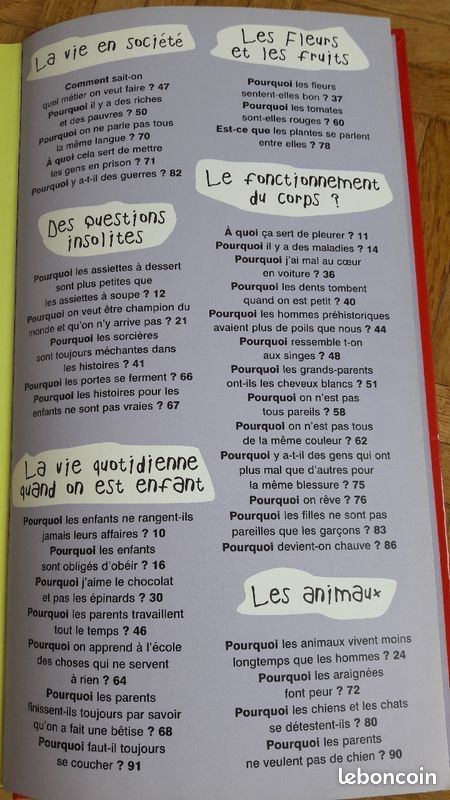 La vie en société
Comment sait-on
quel métier on veut faire ? 47
Pourquoi il y a des riches
et des pauvres ? 50
Pourquoi on ne parle pas tous
la même langue ? 70
À quoi cela sert de mettre
les gens en prison ? 71
Pourquoi y a-t-il des guerres ? 82
Des questions
insolites
Pourquoi les assiettes à dessert
sont plus petites que
les assiettes à soupe ? 12
Pourquoi on veut être champion du
monde et qu'on n'y arrive pas ? 21
Pourquoi les sorcières
sont toujours méchantes dans
les histoires ? 41
Pourquoi les portes se ferment ? 66
Pourquoi les histoires pour les
enfants ne sont pas vraies ? 67
La vie quotidienne
quand on est enfant
Pourquoi les enfants ne rangent-ils
jamais leurs affaires ? 10
Pourquoi les enfants
sont obligés d'obéir ? 16
Pourquoi j'aime le chocolat
et pas les épinards ? 30
Pourquoi les parents travaillent
tout le temps ? 46
Pourquoi on apprend à l'école
des choses qui ne servent
à rien ? 64
Pourquoi les parents
finissent-ils toujours par savoir
qu'on a fait une bêtise ? 68
Pourquoi faut-il toujours
se coucher ? 91
Les fleurs
et les fruits
Pourquoi les fleurs
sentent-elles bon ? 37
Pourquoi les tomates
sont-elles rouges ? 60
Est-ce que les plantes se parlent
entre elles ? 78
Le fonctionnement
du corps ?
À quoi ça sert de pleurer ? 11
Pourquoi il y a des maladies ? 14
Pourquoi j'ai mal au cœur
en voiture ? 36
Pourquoi les dents tombent
quand on est petit ? 40
Pourquoi les hommes préhistoriques
avaient plus de poils que nous ? 44
Pourquoi ressemble t-on
aux singes ? 48
Pourquoi les grands-parents
ont-ils les cheveux blancs ? 51
Pourquoi on n'est pas
tous pareils ? 58
Pourquoi on n'est pas tous
de la même couleur ? 62
Pourquoi y a-t-il des gens qui ont
plus mal que d'autres pour
la même blessure ? 75
Pourquoi on rêve ? 76
Pourquoi les filles ne sont pas
pareilles que les garçons ? 83
Pourquoi devient-on chauve ? 86
Les animaux
Pourquoi les animaux vivent moins
longtemps que les hommes ? 24
Pourquoi les araignées
font peur ? 72
Pourquoi les chiens et les chats
se détestent-ils ? 80
Pourquoi les parents
ne veulent pas de chien ? 90
leboncoin